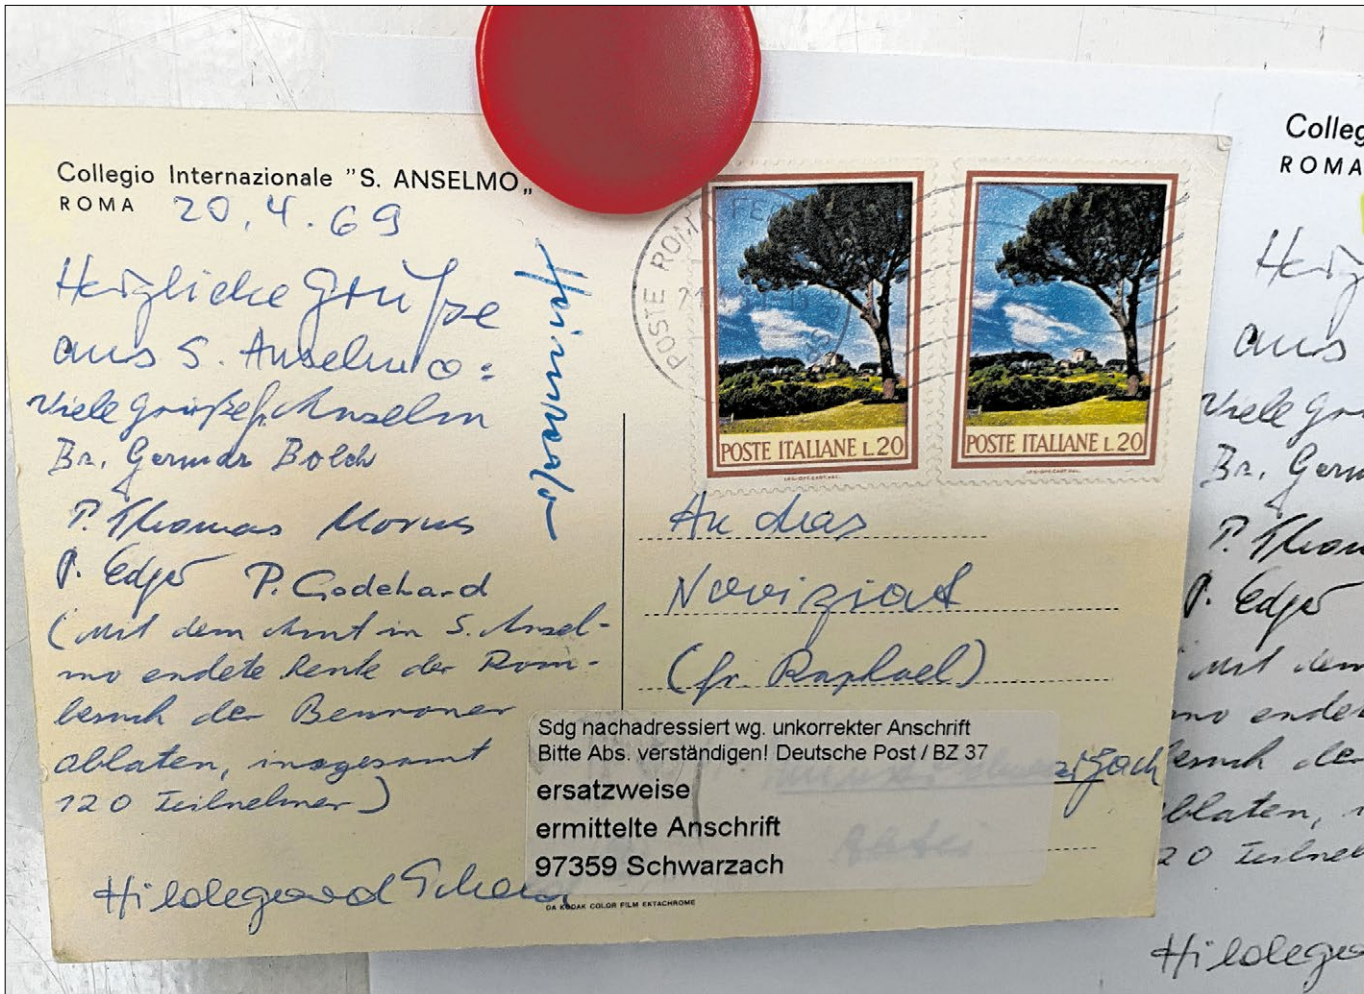 Collegio Internazionale "S. ANSELMO„
ROMA 20.4.69
Herzliche Grüße
aus S. Anselmo:
Viele Grüße Anselm
Br. German Bolch
P. Thomas Morus
P. Edgar P. Godehard
(Mit dem Amt in S. Ansel-
mo endete heute der Rom-
besuch der Beuroner
oblaten, insgesamt
120 Teilnehmer)
Hildegard
DA KODAK COLOR FILM EKTACHROME
POSTE ROMA
POSTE ITALIANE L.20
POSTE ITALIANE L.20
An das
Noviziat
(fr. Raphael)
Sdg nachadressiert wg. unkorrekter Anschrift
Bitte Abs. verständigen! Deutsche Post / BZ 37
ersatzweise
ermittelte Anschrift
97359 Schwarzach
Abtei
Colleg
ROMA
Herz
aus
Viele Grü
Br. Germ
P. Thom
P. Edgar
Mit dem
mo ende
besuch de
oblaten,
20 Teilne
Hildega